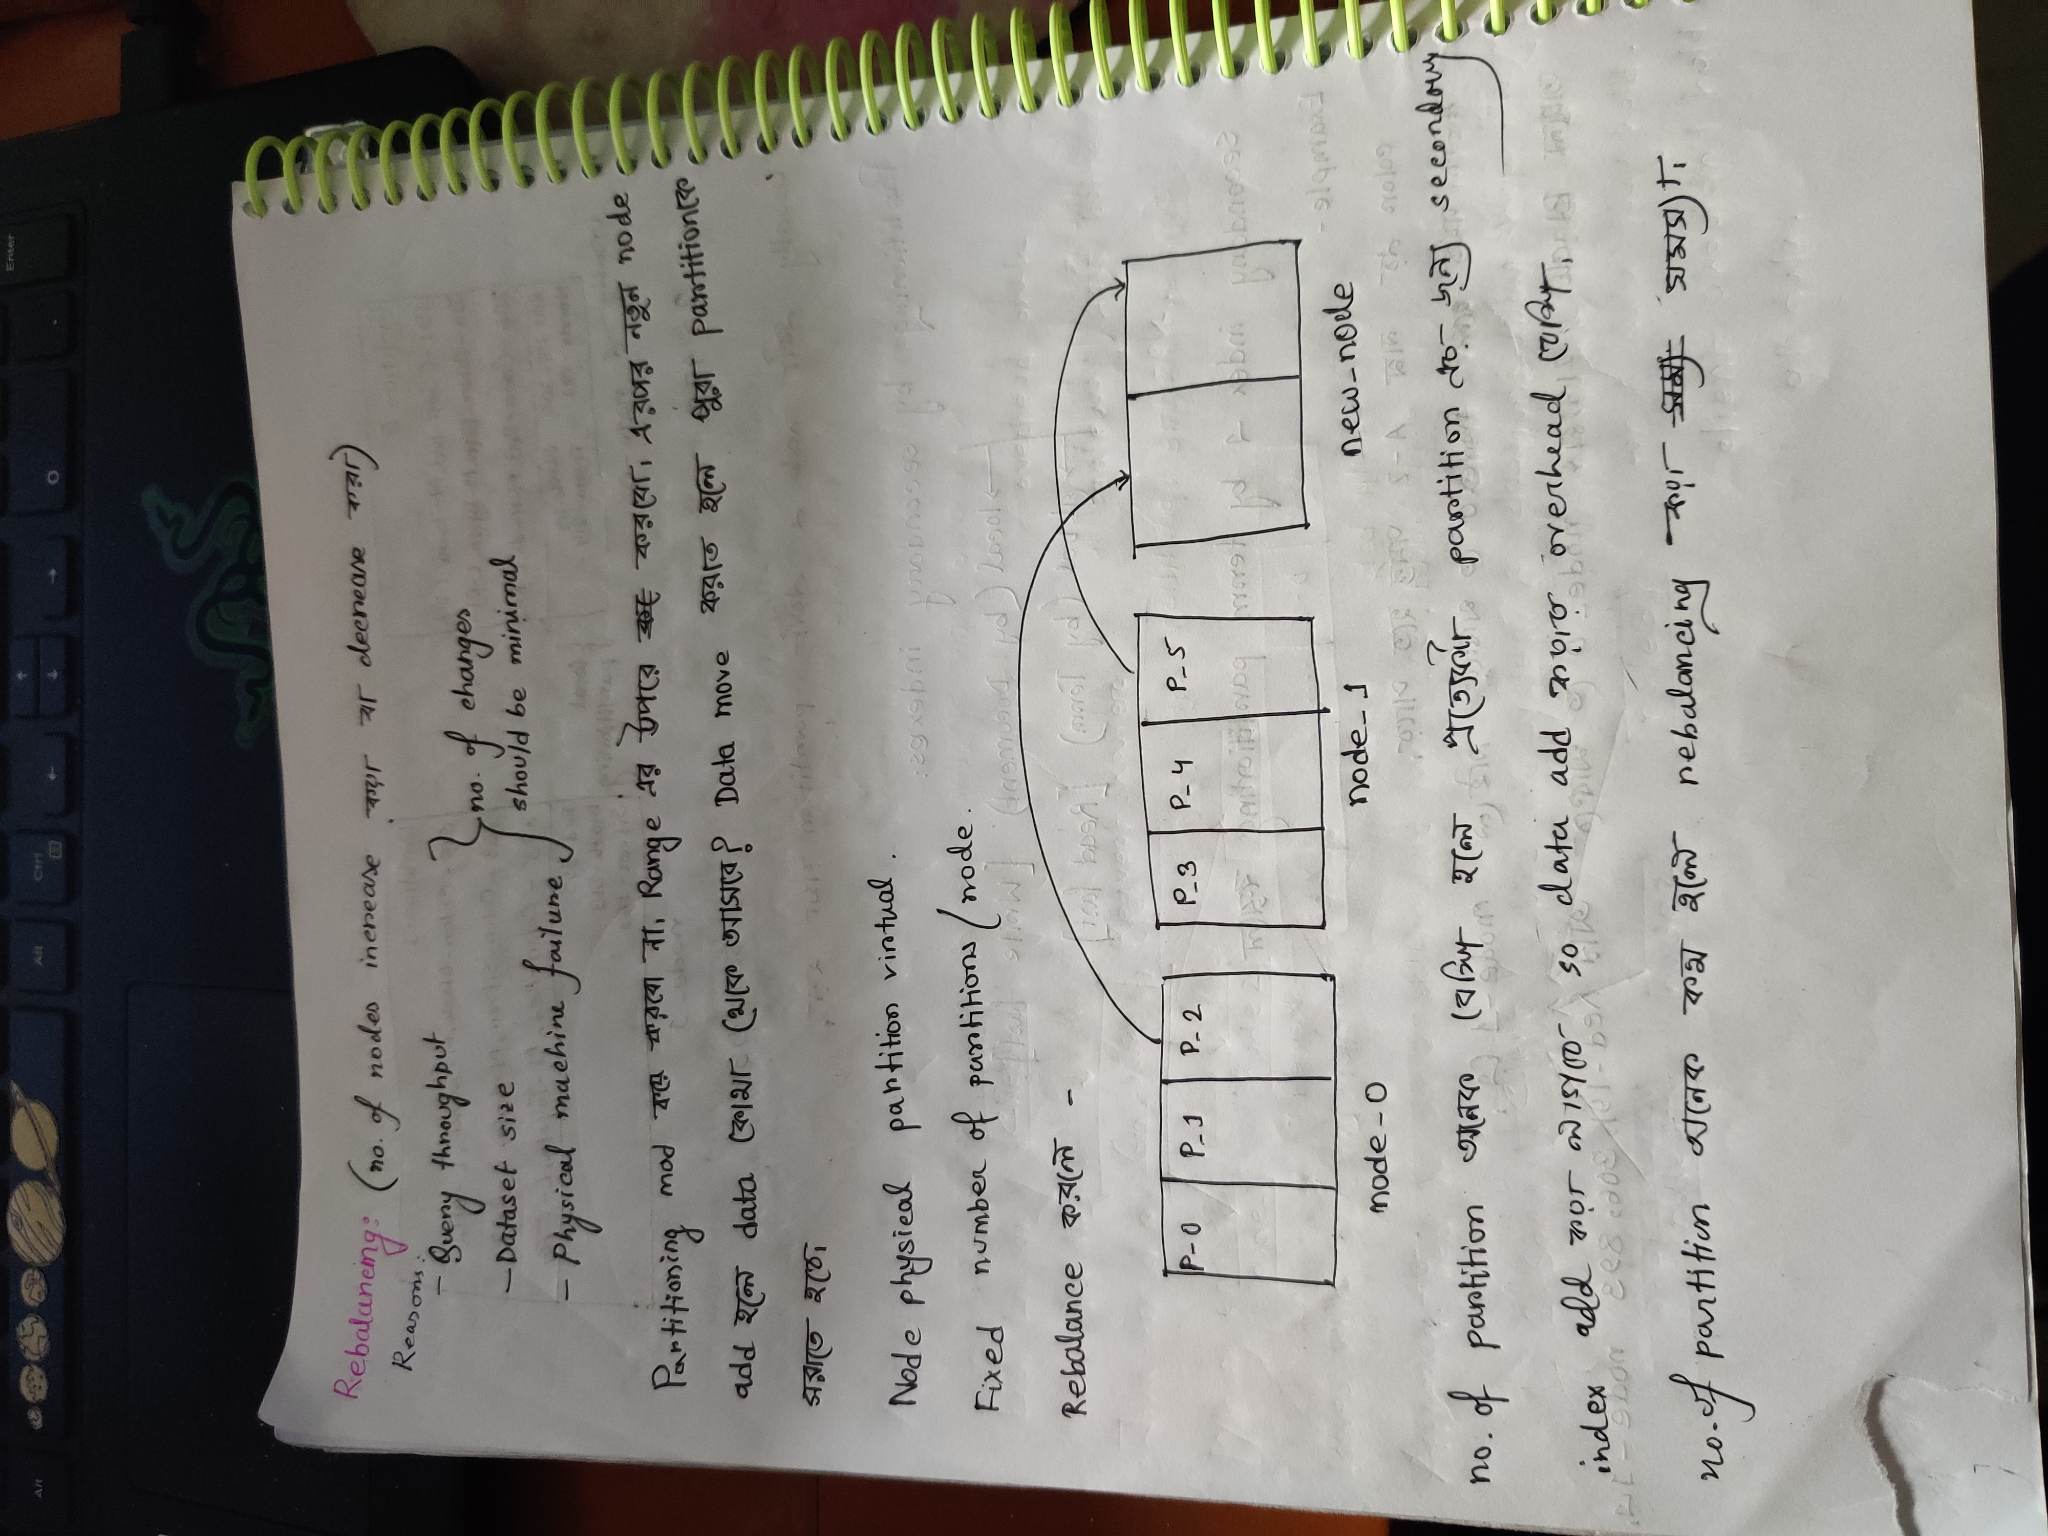 Rebalancing: (no. of nodes increase করা বা decrease করা)
Reasons:
- Query throughput
- Dataset size
- Physical machine failure
no. of changes
should be minimal
Partitioning mod করে করবো না, Range এর উপরে করবো, এরপর নতুন node
add হলে data কোথা থেকে আসবে? Data move করাত হলে পুরা partitionকে
সরাতে হবে,
Node physical partition virtual.
Fixed number of partitions/node.
Rebalance করলে -
P-0 P-1 P-2 P-3 P-4 P-5
node-0 node-1 new-node
no. of partition অনেক বেশি হলে প্রত্যেকটা partition এর জন্য secondary
index add করা লাগবে so data add করার overhead বেশি,
no. of partition অনেক কম হলে rebalancing করা সমস্যা,
Alt Alt Ctrl Enter